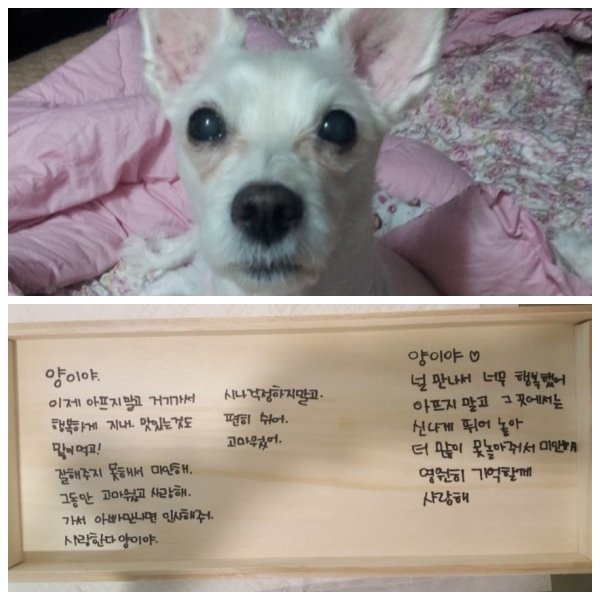 양이야.
이제 아프지말고 거기가서
행복하게 지내. 맛있는것도
많이먹고!
잘해주지 못해서 미안해.
그동안 고마웠고 사랑해.
가서 아빠만나면 인사해줘.
사랑한다 양이야.
시나걱정하지말고.
편히 쉬어.
고마웠어.
양이야 ♡
널 만나서 너무 행복했어
아프지 말고 그 곳에서는
신나게 뛰어 놀아
더 많이 못놀아줘서 미안해
영원히 기억할게
사랑해